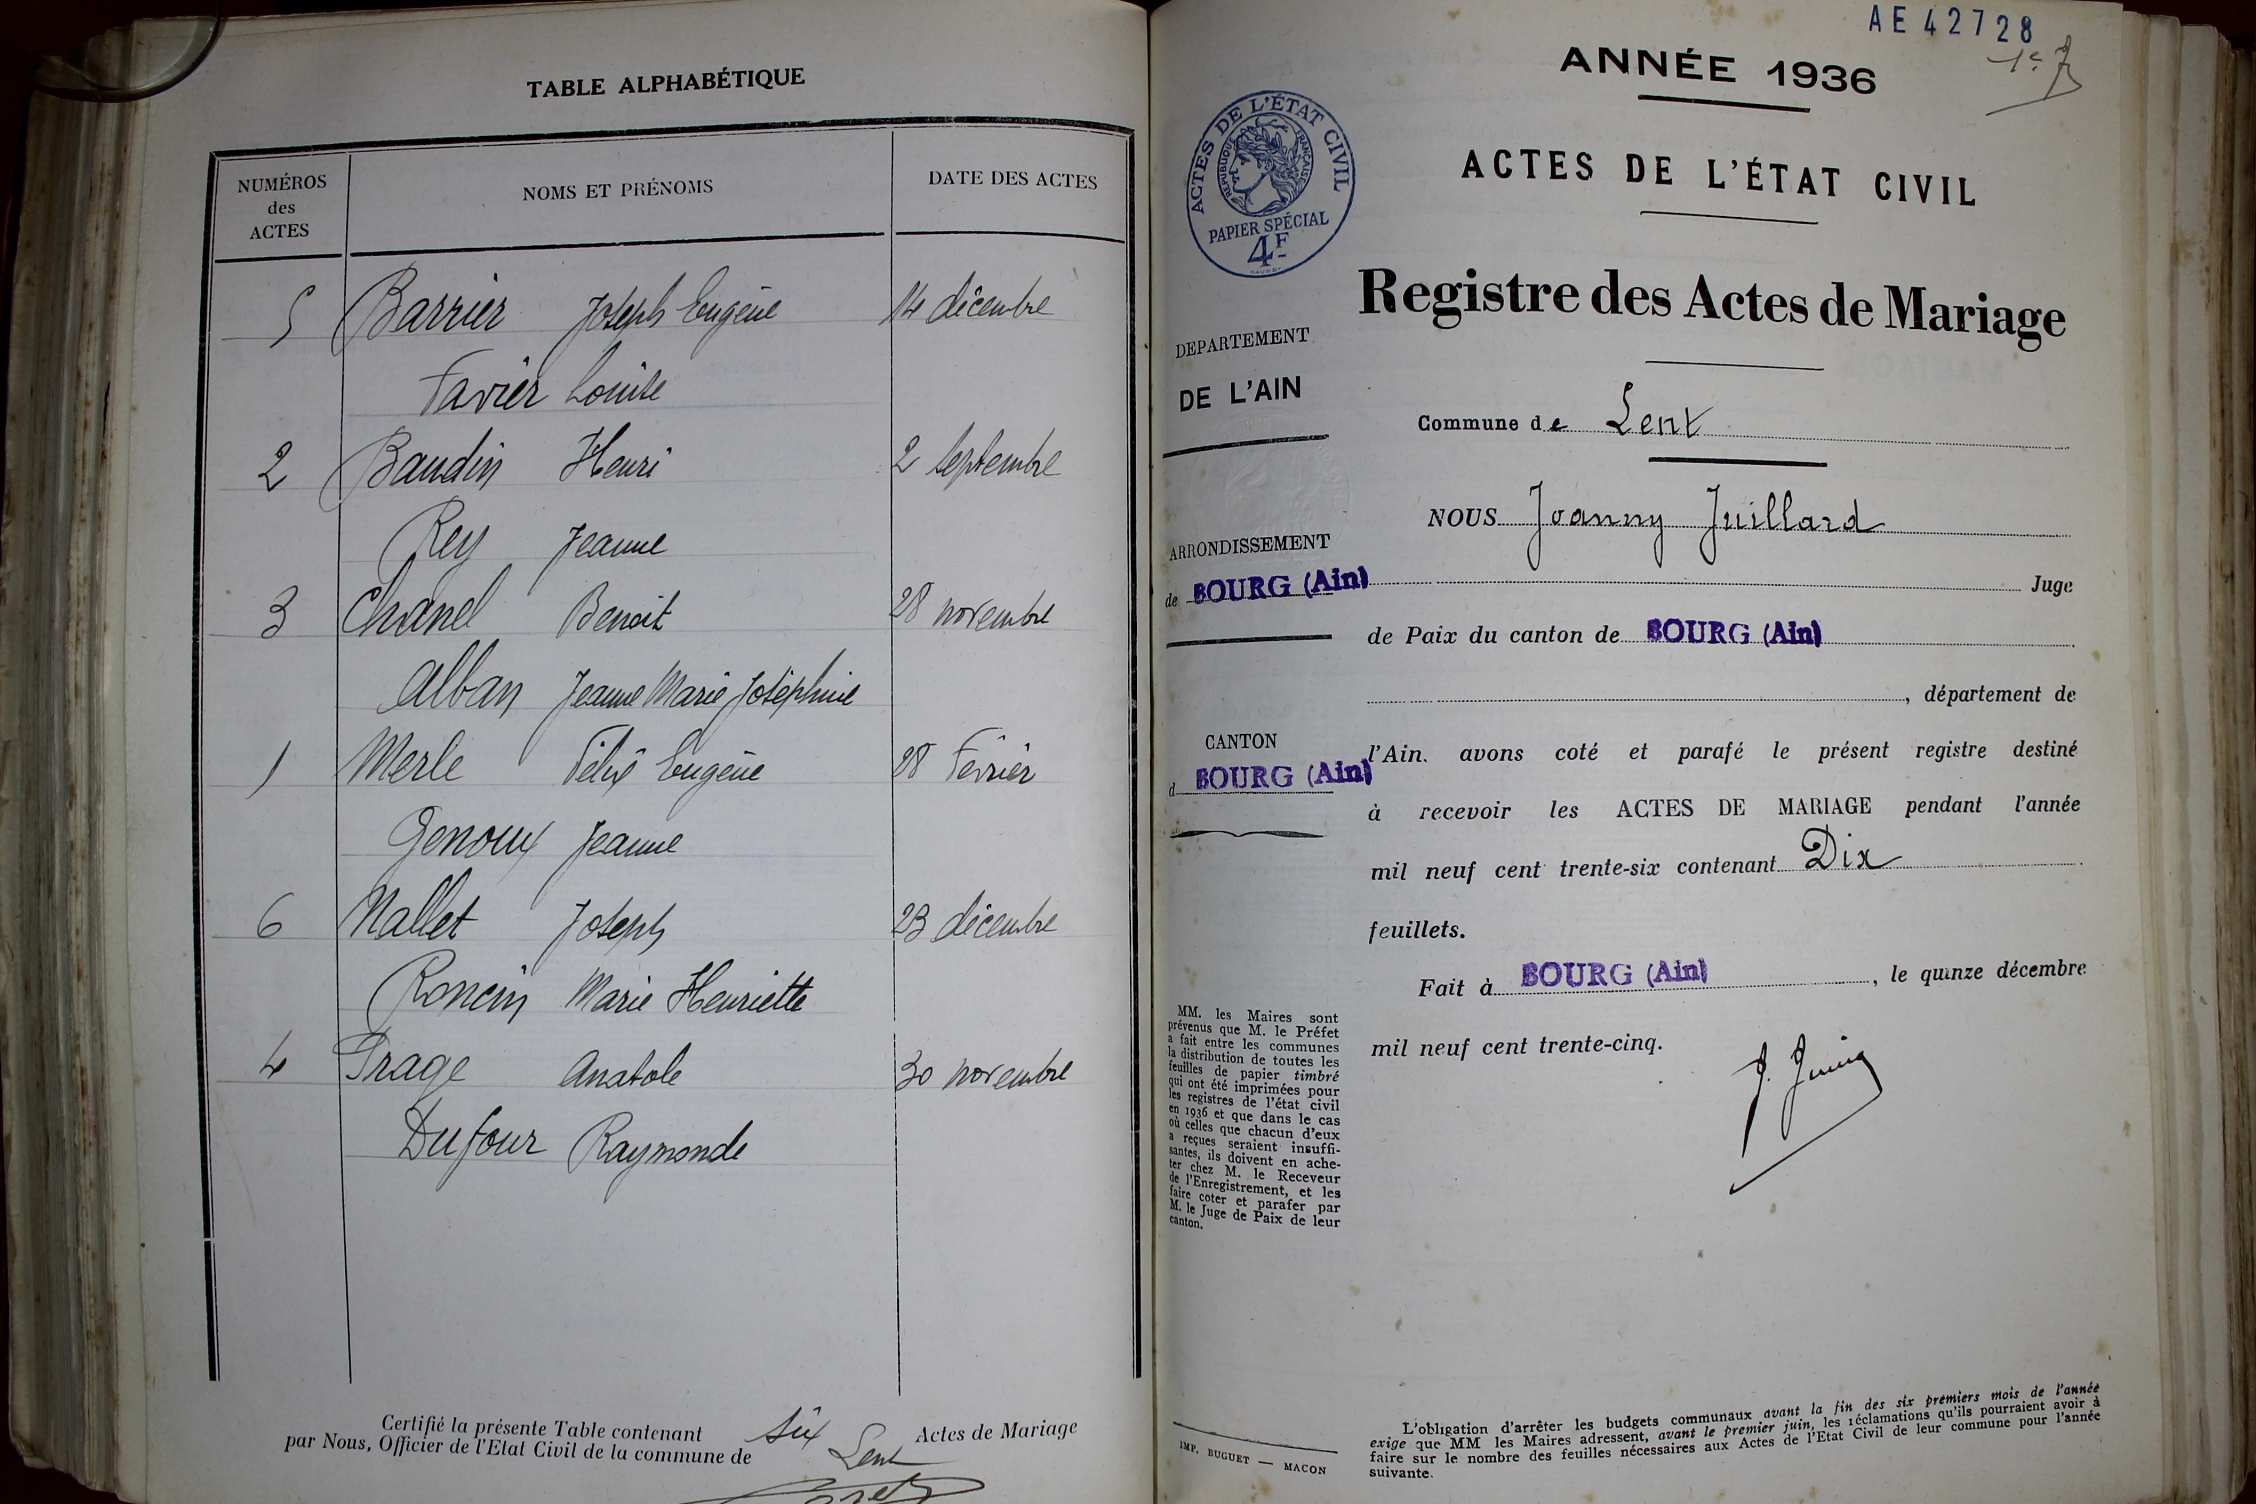 TABLE ALPHABÉTIQUE
NUMÉROS
des
ACTES
NOMS ET PRÉNOMS
DATE DES ACTES
5 Barrier Joseph Eugène 14 décembre
Favier Louise
2 Baudin Henri 2 septembre
Rey Jeanne
3 Chanel Benoit 28 novembre
Alban Jeanne Marie Joséphine
1 Merle Félix Eugène 28 Février
Genoux Jeanne
6 Nallet Joseph 23 décembre
Roncin Marie Henriette
4 Prage Anatole 30 novembre
Dufour Raymonde
Certifié la présente Table contenant six Actes de Mariage
par Nous, Officier de l'Etat Civil de la commune de Lent
AE 42728
1e
ANNÉE 1936
ACTES DE L'ÉTAT CIVIL
RÉPUBLIQUE FRANÇAISE
PAPIER SPÉCIAL
4F
ACTES DE L'ÉTAT CIVIL
Registre des Actes de Mariage
DEPARTEMENT
DE L'AIN
Commune de Lent
NOUS Joanny Juillard
ARRONDISSEMENT
de BOURG (Ain) Juge
de Paix du canton de BOURG (Ain)
, département de
CANTON
d BOURG (Ain)
l'Ain. avons coté et parafé le présent registre destiné
à recevoir les ACTES DE MARIAGE pendant l'année
mil neuf cent trente-six contenant Dix
feuillets.
Fait à BOURG (Ain), le quinze décembre
mil neuf cent trente-cinq.
MM. les Maires sont
prévenus que M. le Préfet
a fait entre les communes
la distribution de toutes les
feuilles de papier timbré
qui ont été imprimées pour
les registres de l'état civil
en 1936 et que dans le cas
où celles que chacun d'eux
a reçues seraient insuffi-
santes, ils doivent en ache-
ter chez M. le Receveur
de l'Enregistrement, et les
faire coter et parafer par
M. le Juge de Paix de leur
canton.
IMP. BUGUET — MACON
L'obligation d'arrêter les budgets communaux avant la fin des six premiers mois de l'année
exige que MM les Maires adressent, avant le premier juin, les réclamations qu'ils pourraient avoir à
faire sur le nombre des feuilles nécessaires aux Actes de l'Etat Civil de leur commune pour l'année
suivante.